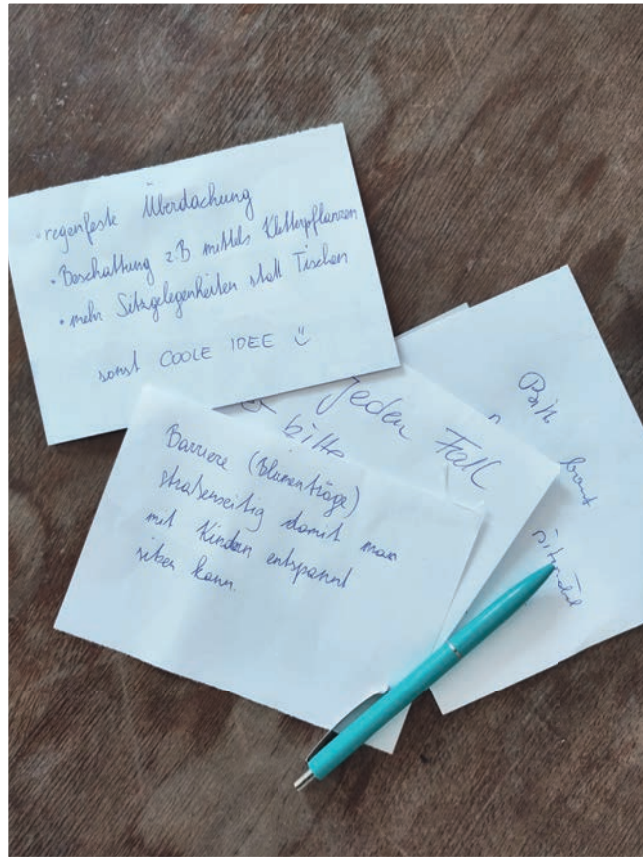 · regenfeste Überdachung
· Beschattung z.B mittels Kletterpflanzen
· mehr Sitzgelegenheiten statt Tischen
sonst COOLE IDEE ☺
Jeden Fall
bitte
Barriere (Blumentröge)
straßenseitig damit man
mit Kindern entspannt
sitzen kann.